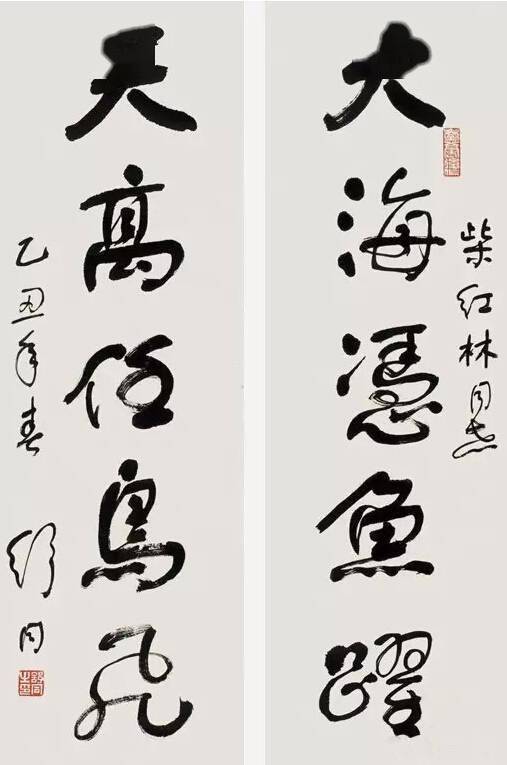 大海憑魚躍
柴红林同志
天高任鳥飛
乙丑年春
舒同